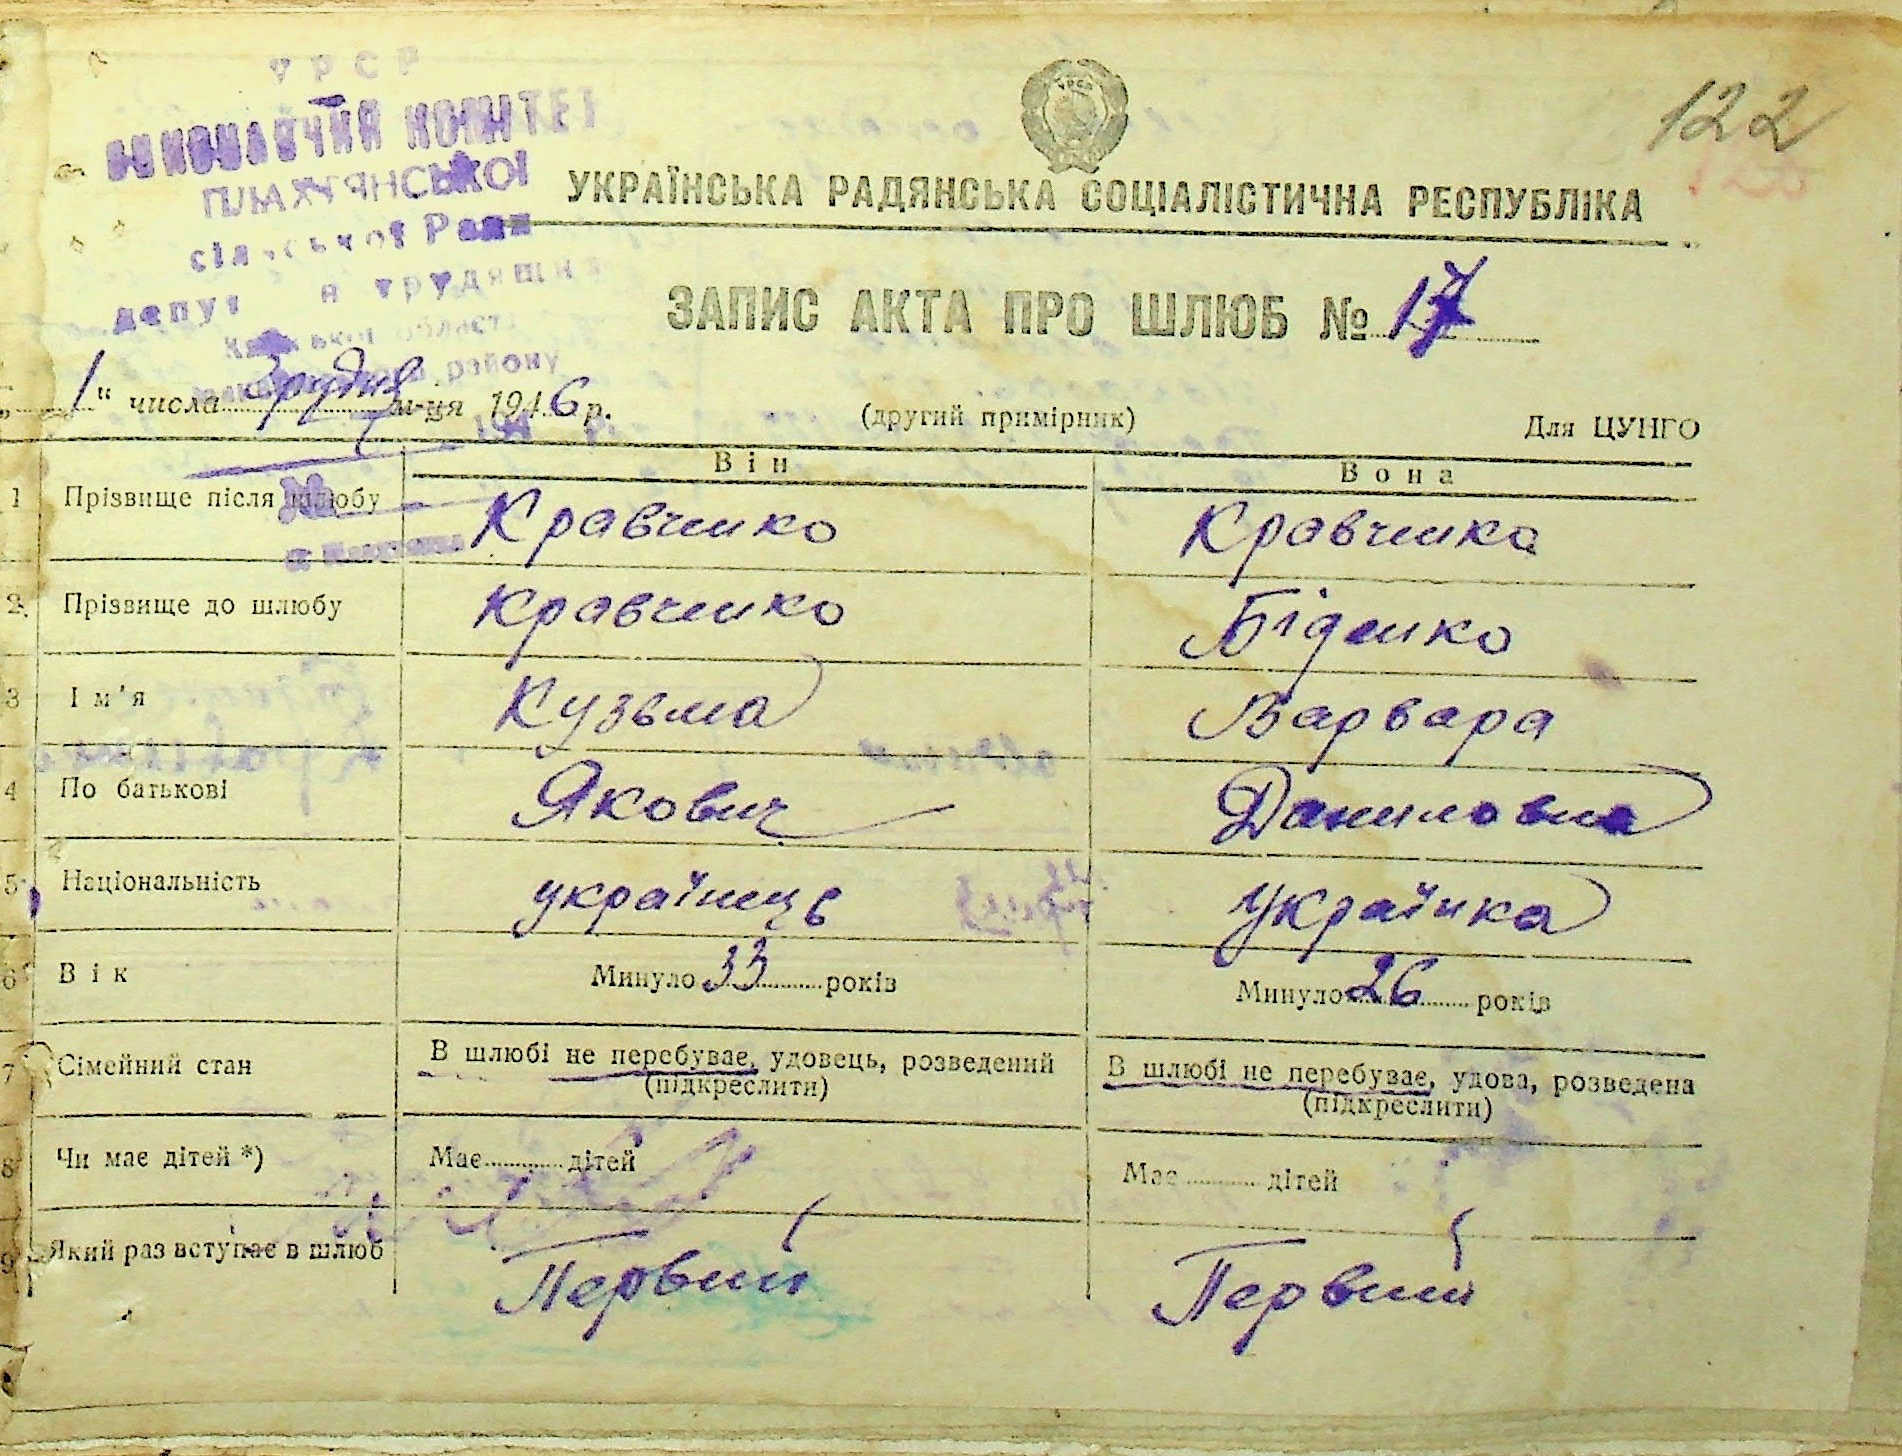 УРСР
ВИКОНАВЧИЙ КОМІТЕТ
ПЛАХТЯНСЬКОЇ
сільської Ради
депут в трудящих
області
району
УРСР
122
УКРАЇНСЬКА РАДЯНСЬКА СОЦІАЛІСТИЧНА РЕСПУБЛІКА
ЗАПИС АКТА ПРО ШЛЮБ № 17
„1“ числа Грудня м-ця 1946 р.
(другий примірник)
Для ЦУНГО
Він
Вона
1 Прізвище після шлюбу Кравченко Кравченко
2 Прізвище до шлюбу Кравченко Біденко
3 Ім'я Кузьма Варвара
4 По батькові Якович Даниловна
5 Національність українець Українка
6 Вік Минуло 33 років Минуло 26 років
7 Сімейний стан В шлюбі не перебуває, удовець, розведений В шлюбі не перебуває, удова, розведена
(підкреслити) (підкреслити)
8 Чи має дітей *) Має дітей Має дітей
9 Який раз вступає в шлюб Первий Первий